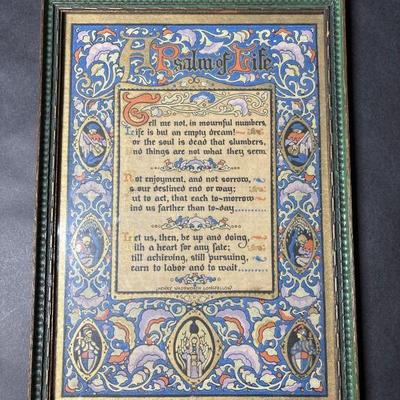 A Psalm of Life
Tell me not, in mournful numbers,
Life is but an empty dream!
For the soul is dead that slumbers,
And things are not what they seem.
Not enjoyment, and not sorrow,
Is our destined end or way;
But to act, that each to-morrow
Find us farther than to-day
Let us, then, be up and doing,
With a heart for any fate;
Still achieving, still pursuing,
Learn to labor and to wait
HENRY WADSWORTH LONGFELLOW